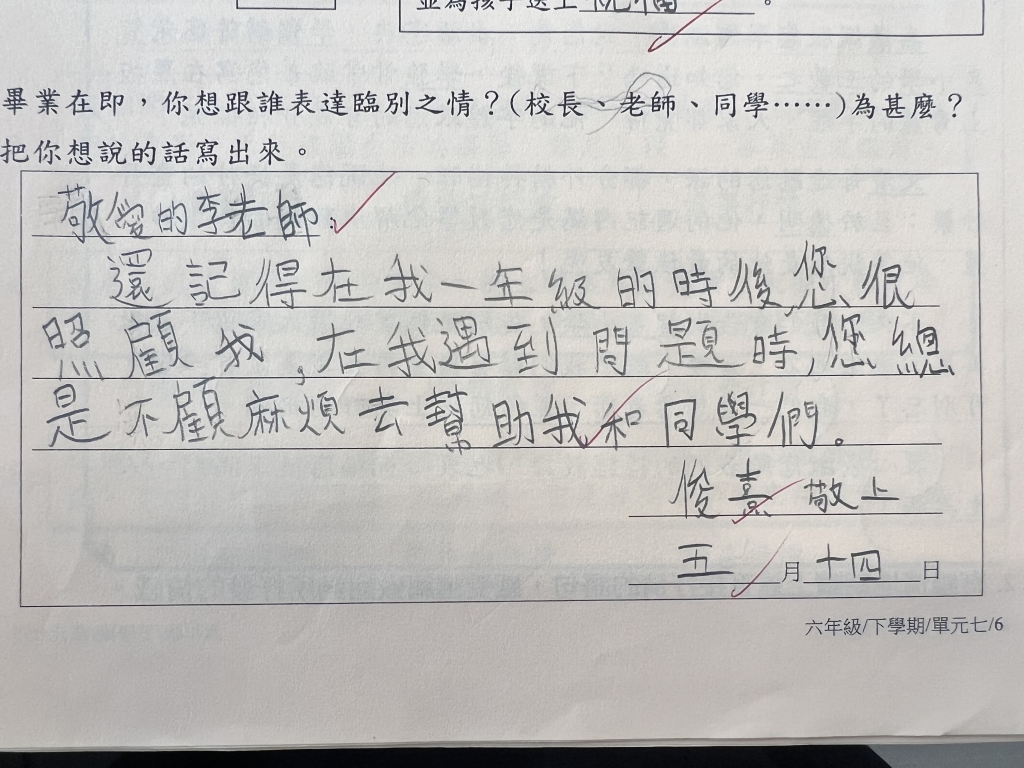 並為孩子送上祝福。
畢業在即，你想跟誰表達臨別之情？(校長、老師、同學……)為甚麼？
把你想說的話寫出來。
敬愛的李老師：
還記得在我一年級的時後,您很
照顧我,在我遇到問題時,您總
是不顧麻煩去幫助我和同學們。
俊熹 敬上
五月十四日
六年級/下學期/單元七/6